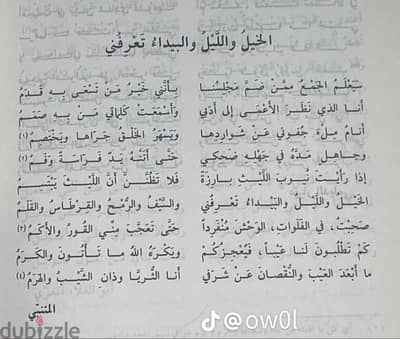 الخَيلُ واللَّيْلُ والبيداءُ تَعْرِفُني
سَيَعْلَمُ الجَمْعُ مِمَّنْ ضَمَّ مَجْلِسُنا بأنَّني خَيْرُ مَنْ تَسْعَى بِهِ قَدَمُ
أنا الذي نَظَرَ الأعْمَى إلى أدَبي وَأسْمَعَتْ كَلِماتي مَنْ بِهِ صَمَمُ
أنامُ مِلْءَ جُفوني عَنْ شَوارِدِها وَيَسْهَرُ الخَلْقُ جَرَاها وَيَخْتَصِمُ (١)
وَجاهِلٍ مَدَّهُ في جَهْلِهِ ضَحِكي حَتَّى أَتَتْهُ يَدٌ فَرّاسَةٌ وَفَمُ (٢)
إذا رَأَيْتَ نُيوبَ اللَّيْثِ بارِزَةً فَلا تَظُنَّنَّ أنَّ اللَّيْثَ يَبْتَسِمُ
الخَيْلُ واللَّيْلُ والبَيْداءُ تَعْرِفُني والسَّيْفُ والرُّمْحُ والقِرْطاسُ والقَلَمُ
صَحِبْتُ، في الفَلَواتِ، الوَحْشَ مُنْفَرِداً حَتَّى تَعَجَّبَ مِنِّي القُورُ والأكَمُ (٣)
كَمْ تَطْلُبُونَ لَنا عَيْباً، فَيُعْجِزُكُمْ وَيَكْرَهُ اللهُ ما تَأتُونَ والكَرَمُ
ما أبْعَدَ العَيْبَ والنُّقْصانَ عَنْ شَرَفي أنا الثُّرَيّا وَذانِ الشَّيْبُ والهَرَمُ (٤)
المتنبّي
@ow0l
dubizzle